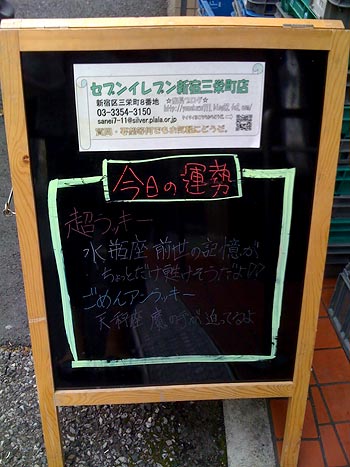 セブンイレブン新宿三栄町店
新宿区三栄町8番地
03-3354-3150
sanei7-11@silver.plala.or.jp
今日の運勢
超ラッキー
水瓶座 前世の記憶が
ちょっとだけ
ごめんアンラッキー
天秤座 魔の手が迫ってるよ